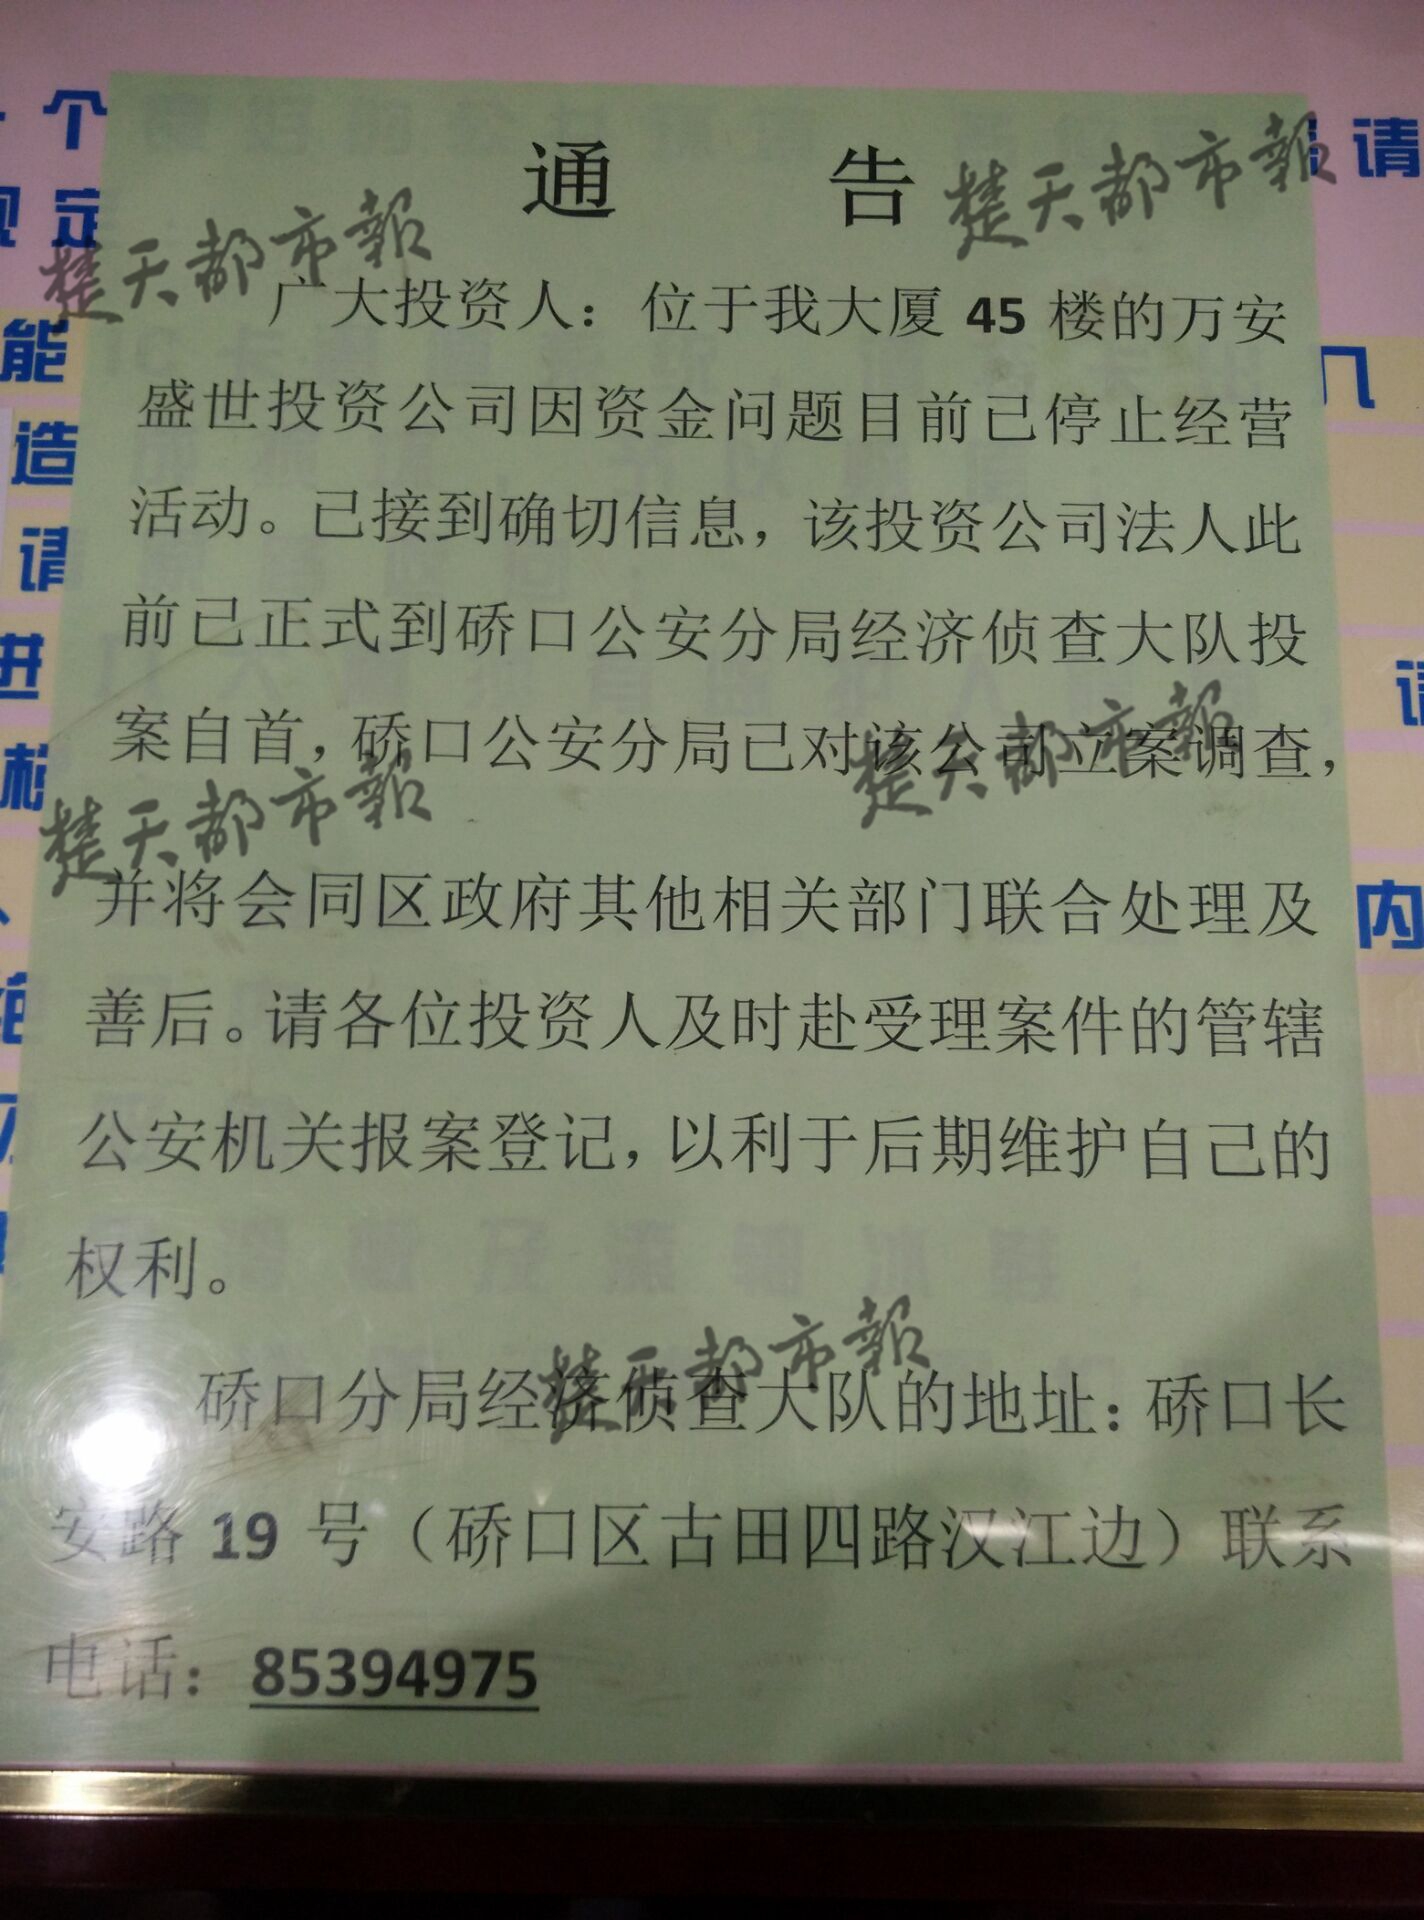 通 告
广大投资人：位于我大厦 45 楼的万安
盛世投资公司因资金问题目前已停止经营
活动。已接到确切信息，该投资公司法人此
前已正式到硚口公安分局经济侦查大队投
案自首，硚口公安分局已对该公司立案调查，
并将会同区政府其他相关部门联合处理及
善后。请各位投资人及时赴受理案件的管辖
公安机关报案登记，以利于后期维护自己的
权利。
硚口分局经济侦查大队的地址：硚口长
安路 19 号（硚口区古田四路汉江边）联系
电话：85394975
楚天都市報
楚天都市報
楚天都市報
楚天都市報
楚天都市報
个
请
定
能
造
请
进
内